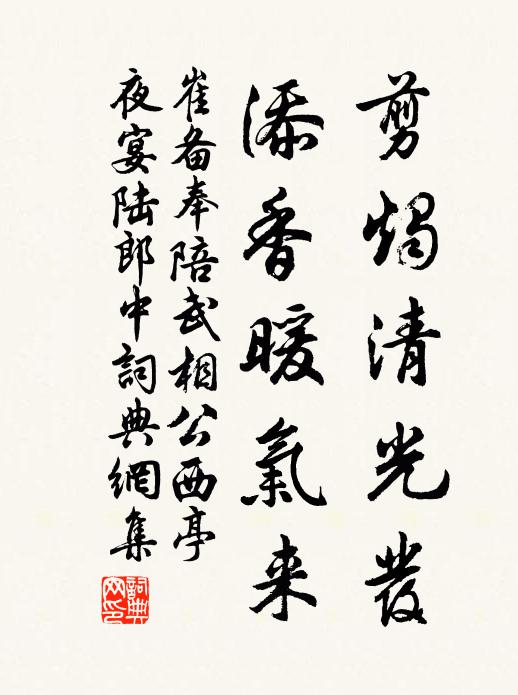 剪燭清光發
添香暖氣来
崔备奉陪武相公西亭
夜宴陆郎中詞典網集
詞典网印